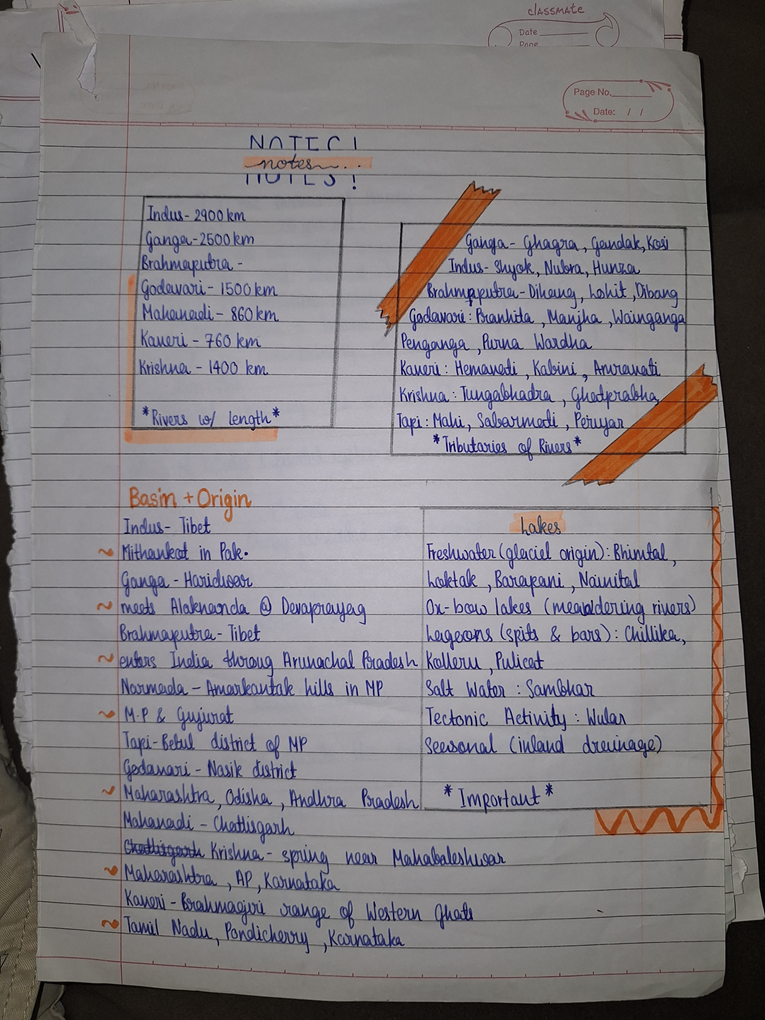 classmate
Date
Page
Page No.
Date: / /
NOTES!
notes...
Indus- 2900 km
Ganga- 2500 km
Brahmaputra -
Godavari - 1500 km
Mahanadi - 860 km
Kaveri - 760 km
Krishna - 1400 km
*Rivers w/ length*
Ganga- Ghagra, Gandak, Kosi
Indus- Shyok, Nubra, Hunza
Brahmaputra- Dihang, Lohit, Dibang
Godavari: Pranhita, Manjha, Wainganga
Penganga, Purna Wardha
Kaveri: Hemavadi, Kabini, Amravati
Krishna: Tungabhadra, Ghatprabha,
Tapi: Mahi, Sabarmadi, Periyar
*Tributaries of Rivers*
Basin + Origin
Indus- Tibet
~ Mithankot in Pak.
Ganga - Haridwar
~ meets Alaknanda @ Devaprayag
Brahmaputra- Tibet
~ enters India throug Arunachal Pradesh
Narmada - Amarkantak hills in MP
~ M.P & Gujurat
Tapi- Betul district of MP
Godavari - Nasik district
~ Maharashtra, Odisha, Andhra Pradesh
Mahanadi - Chattisgarh
Chattisgarh Krishna - spring near Mahabaleshwar
~ Maharashtra, AP, Karnataka
Kaveri - Brahmagiri range of Western Ghats
~ Tamil Nadu, Pondicherry, Karnataka
Lakes
Freshwater (glacial origin): Bhimtal,
Loktak, Barapani, Nainital
Ox-bow lakes (meandering rivers)
Lagoons (spits & bars): Chillika,
Kolleru, Pulicat
Salt Water : Sambhar
Tectonic Activity : Wular
Seasonal (inland dreinage)
*Important*